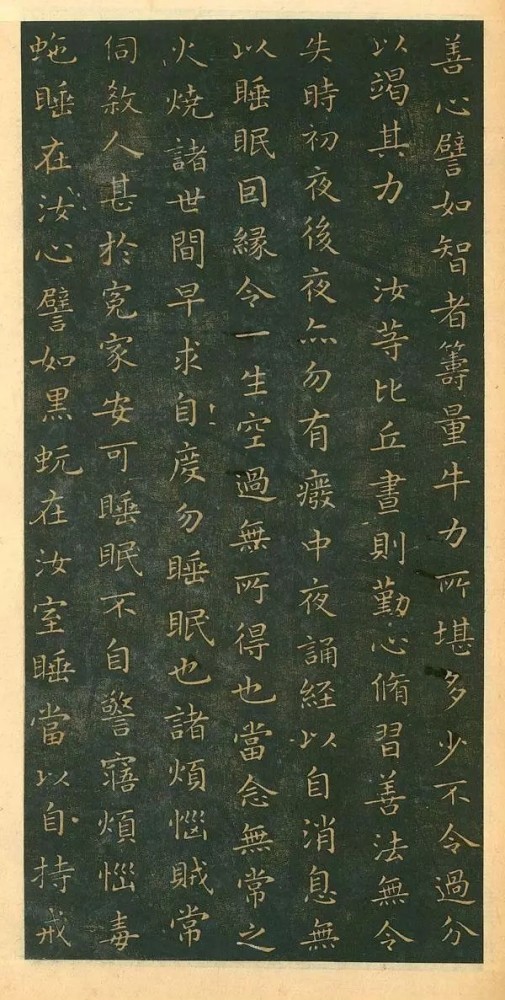 善心譬如智者籌量牛力所堪多少不令過分
以竭其力　汝等比丘晝則勤心脩習善法無令
失時初夜後夜亦勿有癈中夜誦経以自消息無
以睡眠因緣令一生空過無所得也當念無常之
火燒諸世間早求自度勿睡眠也諸煩惱賊常
伺煞人甚於冤家安可睡眠不自警寤煩惱毒
虵睡在汝心譬如黒蚖在汝室睡當以自持戒